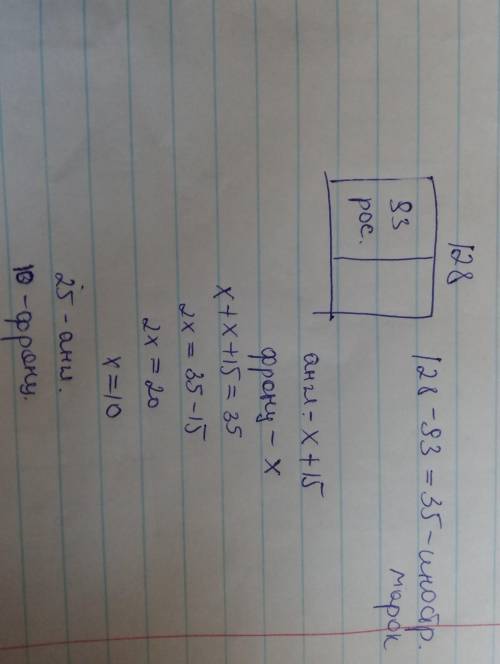 128
93
рос.
128 - 93 = 35 - иностр.
марок
англ - x + 15
франц - x
x + x + 15 = 35
2x = 35 - 15
2x = 20
x = 10
25 - анг.
10 - франц.